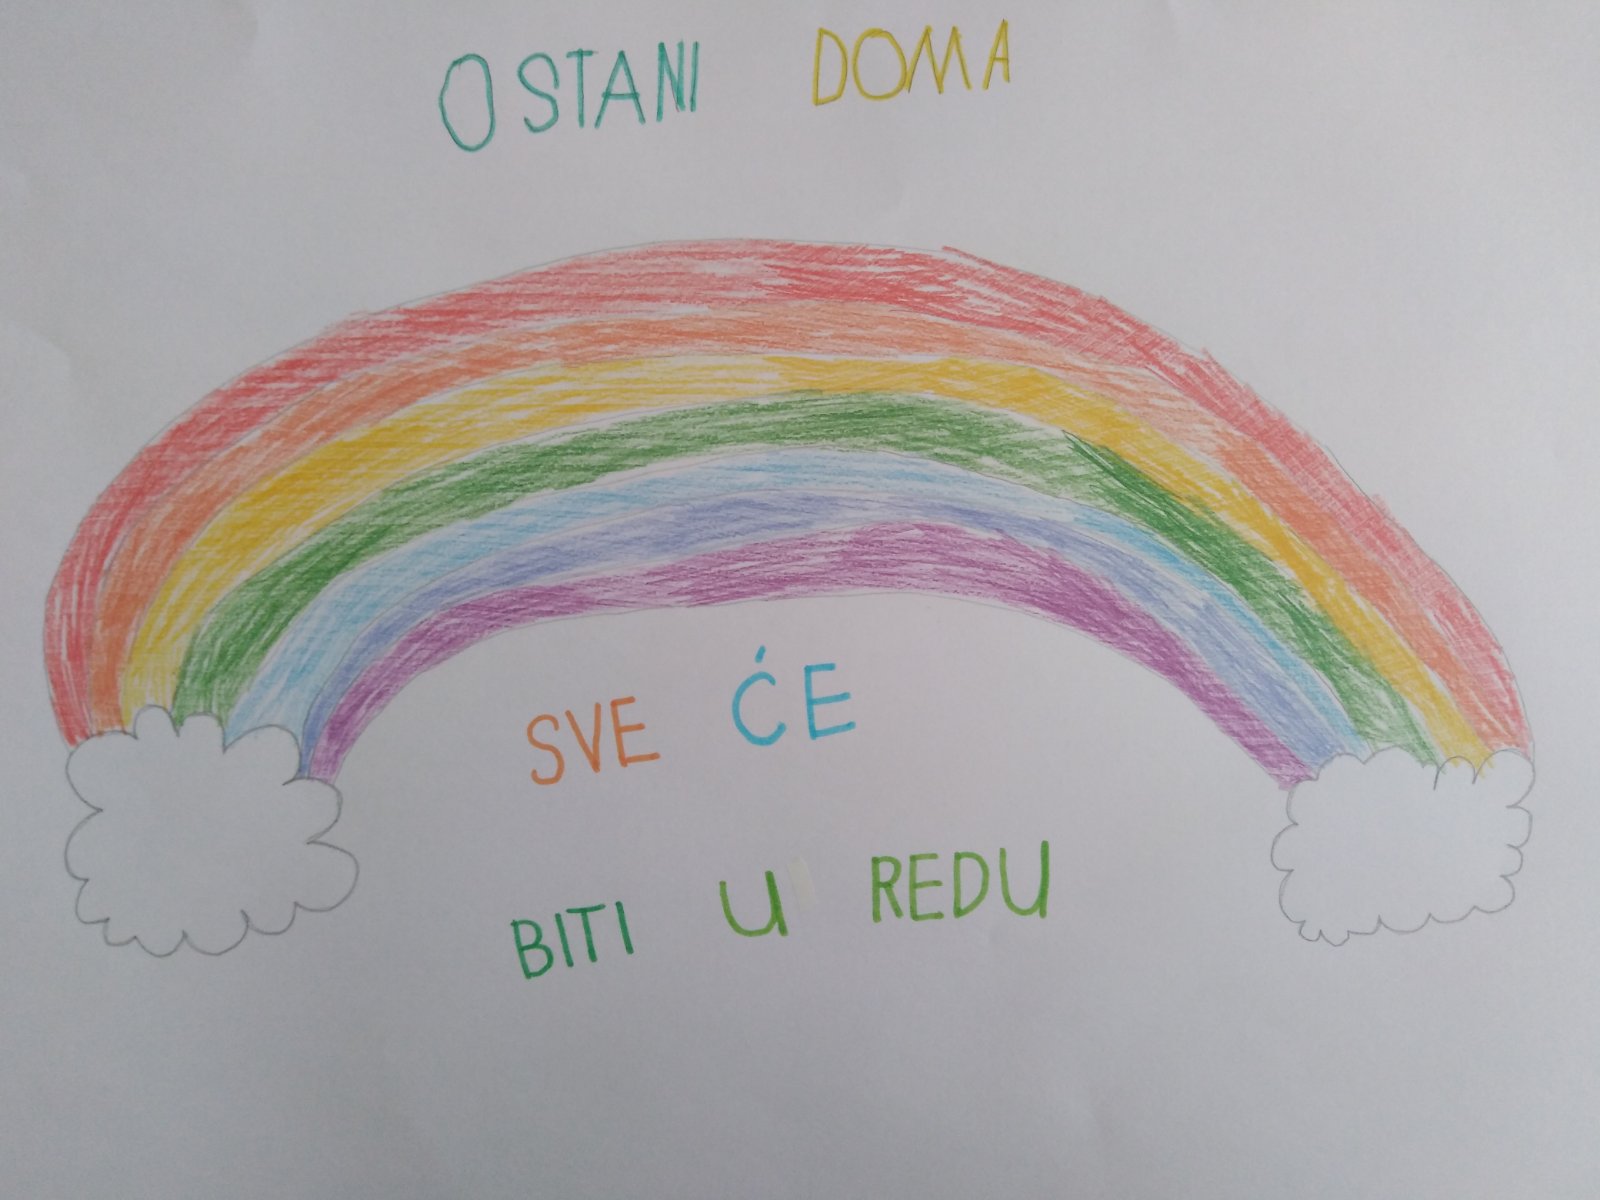 OSTANI DOMA
SVE ĆE
BITI U REDU